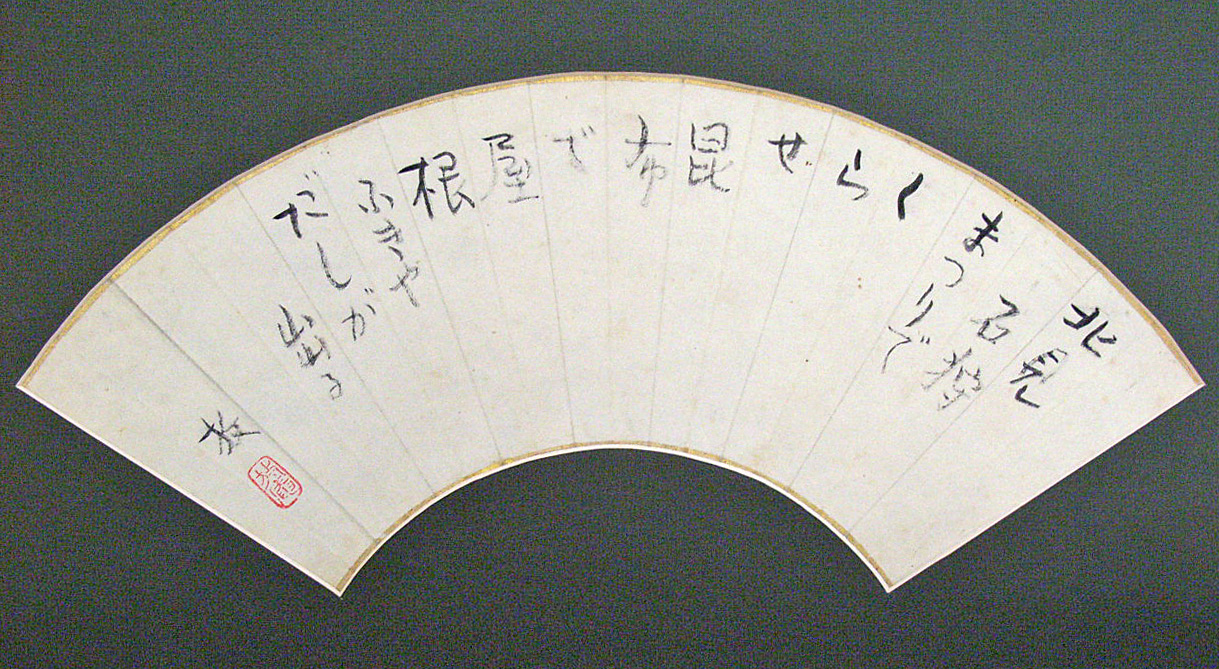 北見
石狩
まつりで
く
ら
せ
昆
布
で
屋
根
ふきや
だしが
出る
放